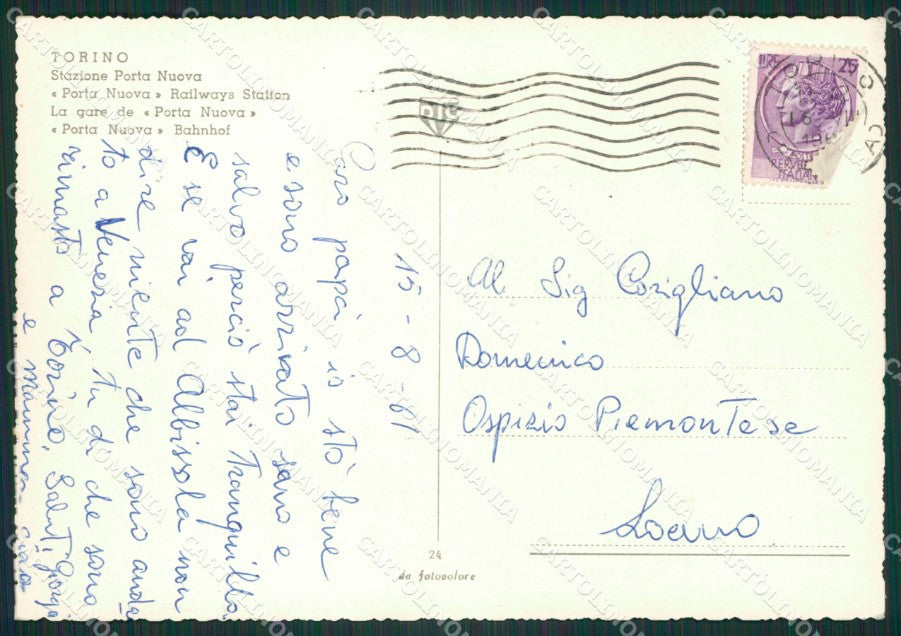 TORINO
Stazione Porta Nuova
« Porta Nuova » Railways Station
La gare de « Porta Nuova »
« Porta Nuova » Bahnhof
15-8-61
Caro papà io stò bene
e sono arrivato sano e
salvo perciò stai tranquillo
E se vai ad Albissola non
dire niente che sono anda
to a Venezia, tu di che sono
rimasto a Torino, Saluti, Giorgio
e mamma
Al Sig Corigliano
Domenico
Ospizio Piemontese
Loano
24
da fotocolore
25
CARTOLINOMANIA